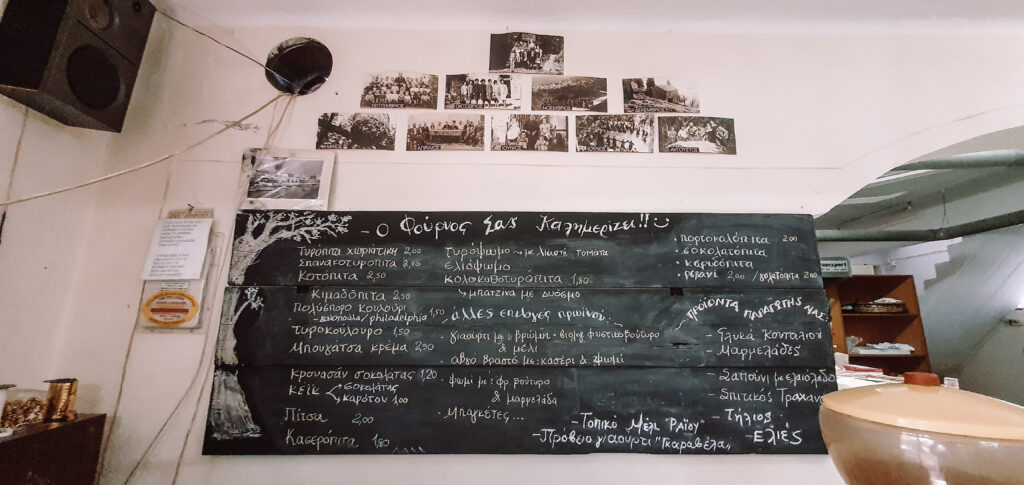 - ο Φούρνος Σας Καλημερίζει!!
Τυρόπιτα χωριάτικη 2,00
Σπανακοτυρόπιτα
Κοτόπιτα 2,50
Κιμαδόπιτα 2,50
Πολύσπορο κουλούρι 1,50
- γαλοπούλα/philadelphia
τυροκούλουρο 1,50
Μπουγάτσα κρέμα 2,50
Κρουασάν σοκολάτας 1,20
κέϊκ → σοκολάτας
→ καρότου 1,00
Πίτσα 2,00
Κασερόπιτα 1,80
τυρόψωμο → με λιαστή τομάτα
ελιόψωμο
κολοκυθοτυρόπιτα 1,80
→ μπατζίνα με δυόσμο
άλλες επιλογές πρωϊνού..
· γιαούρτι με: βρώμη · βιολογ. φυστικοβούτυρο
& μέλι
· αβγό βραστό με: κασέρι & ψωμί
· ψωμί με: φρ. βούτυρο
& μαρμελάδα
· Μπαγκέτες...
- Τοπικό Μέλι "Ραΐου"
- Πρόβειο γιαούρτι "Γκαραβέλα"
· πορτοκαλόπιτα 2,00
· σοκολατόπιτα
· καρυδόπιτα
· ρεβανί 2,00 / γαλατόπιτα 2,00
- ΠΡΟΪΟΝΤΑ ΠΑΡΑΓΩΓΗΣ ΜΑΣ:
- Γλυκά Κουταλιού
- Μαρμελάδες
- Σαπούνι με ελαιόλαδο
- Σπιτικός Τραχανάς
- Τήλιος
- Ελιές
ΣΕΠΤΕΜΒΡΙΟΣ
ΔΕΚΕΜΒΡΙΟΣ
ΜΑΪΟΣ
ΑΠΡΙΛΙΟΣ
ΙΟΥΝΙΟΣ
ΙΟΥΛΙΟΣ
ΑΥΓΟΥΣΤΟΣ